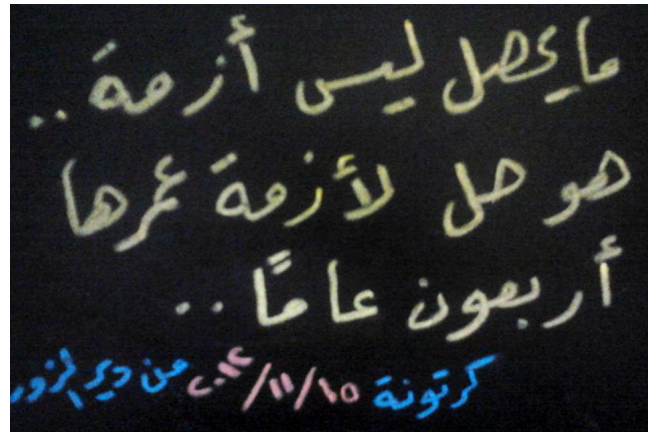 ما يحصل ليس أزمة..
هو حل لأزمة عمرها
أربعون عامًا..
كرتونة ١٥/١١/٢٠١٢ من دير الزور